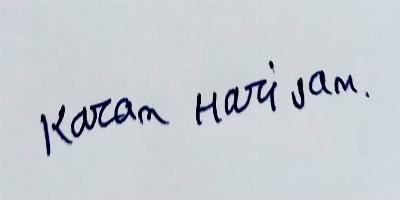 Karan Harijan.